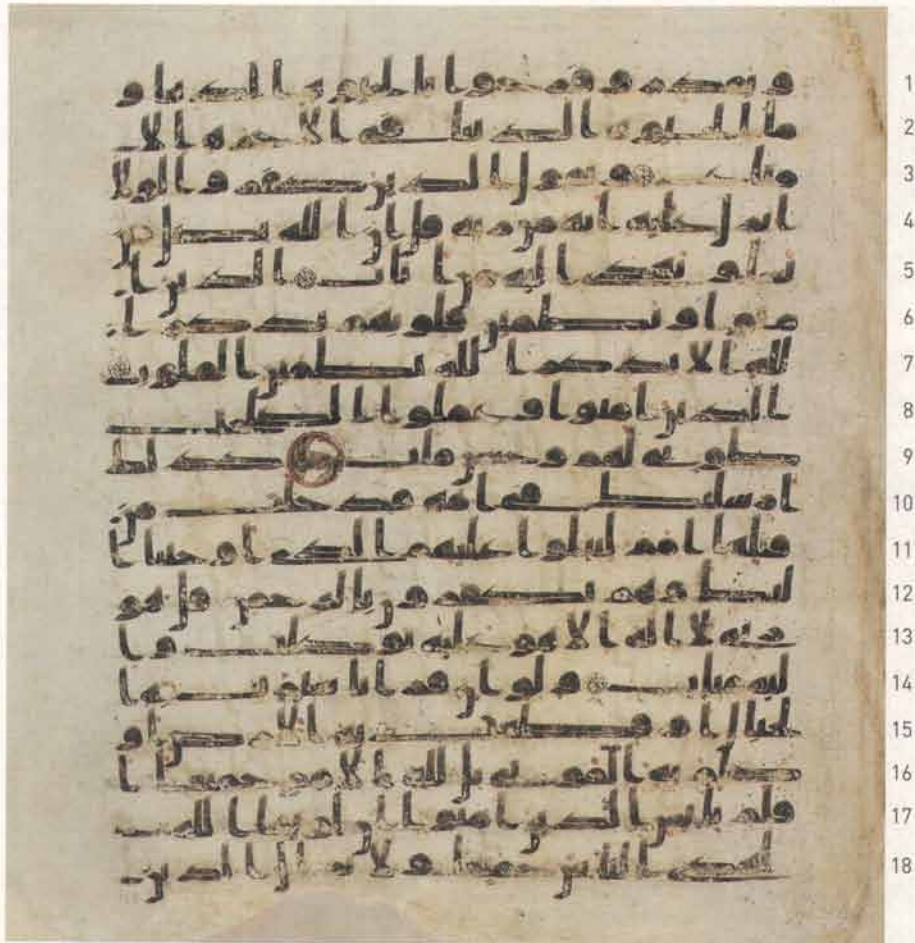 و يقدر و فرحوا بالحيوة الدنيا و 1
ما الحيوة الدنيا في الاخرة الا 2
متع و يقول الذين كفروا لولا 3
انزل عليه اية من ربه قل ان الله يضل من 4
يشا و يهدي اليه من اناب الذين ا 5
منوا و تطمئن قلوبهم بذكر ا 6
لله الا بذكر الله تطمئن القلوب 7
الذين امنوا و عملوا الصلحت 8
طوبى لهم و حسن ماب كذلك 9
ارسلنك في امة قد خلت من 10
قبلها امم لتتلوا عليهم الذي اوحينا ا 11
ليك و هم يكفرون بالرحمن قل هو 12
ربي لا اله الا هو عليه توكلت و ا 13
ليه متاب و لو ان قرانا سيرت به ا 14
لجبال او قطعت به الارض او 15
كلم به الموتى بل لله الامر جميعا ا 16
فلم يايس الذين امنوا ان لو يشا الله 17
لهدى الناس جميعا و لا يزال الذين 18